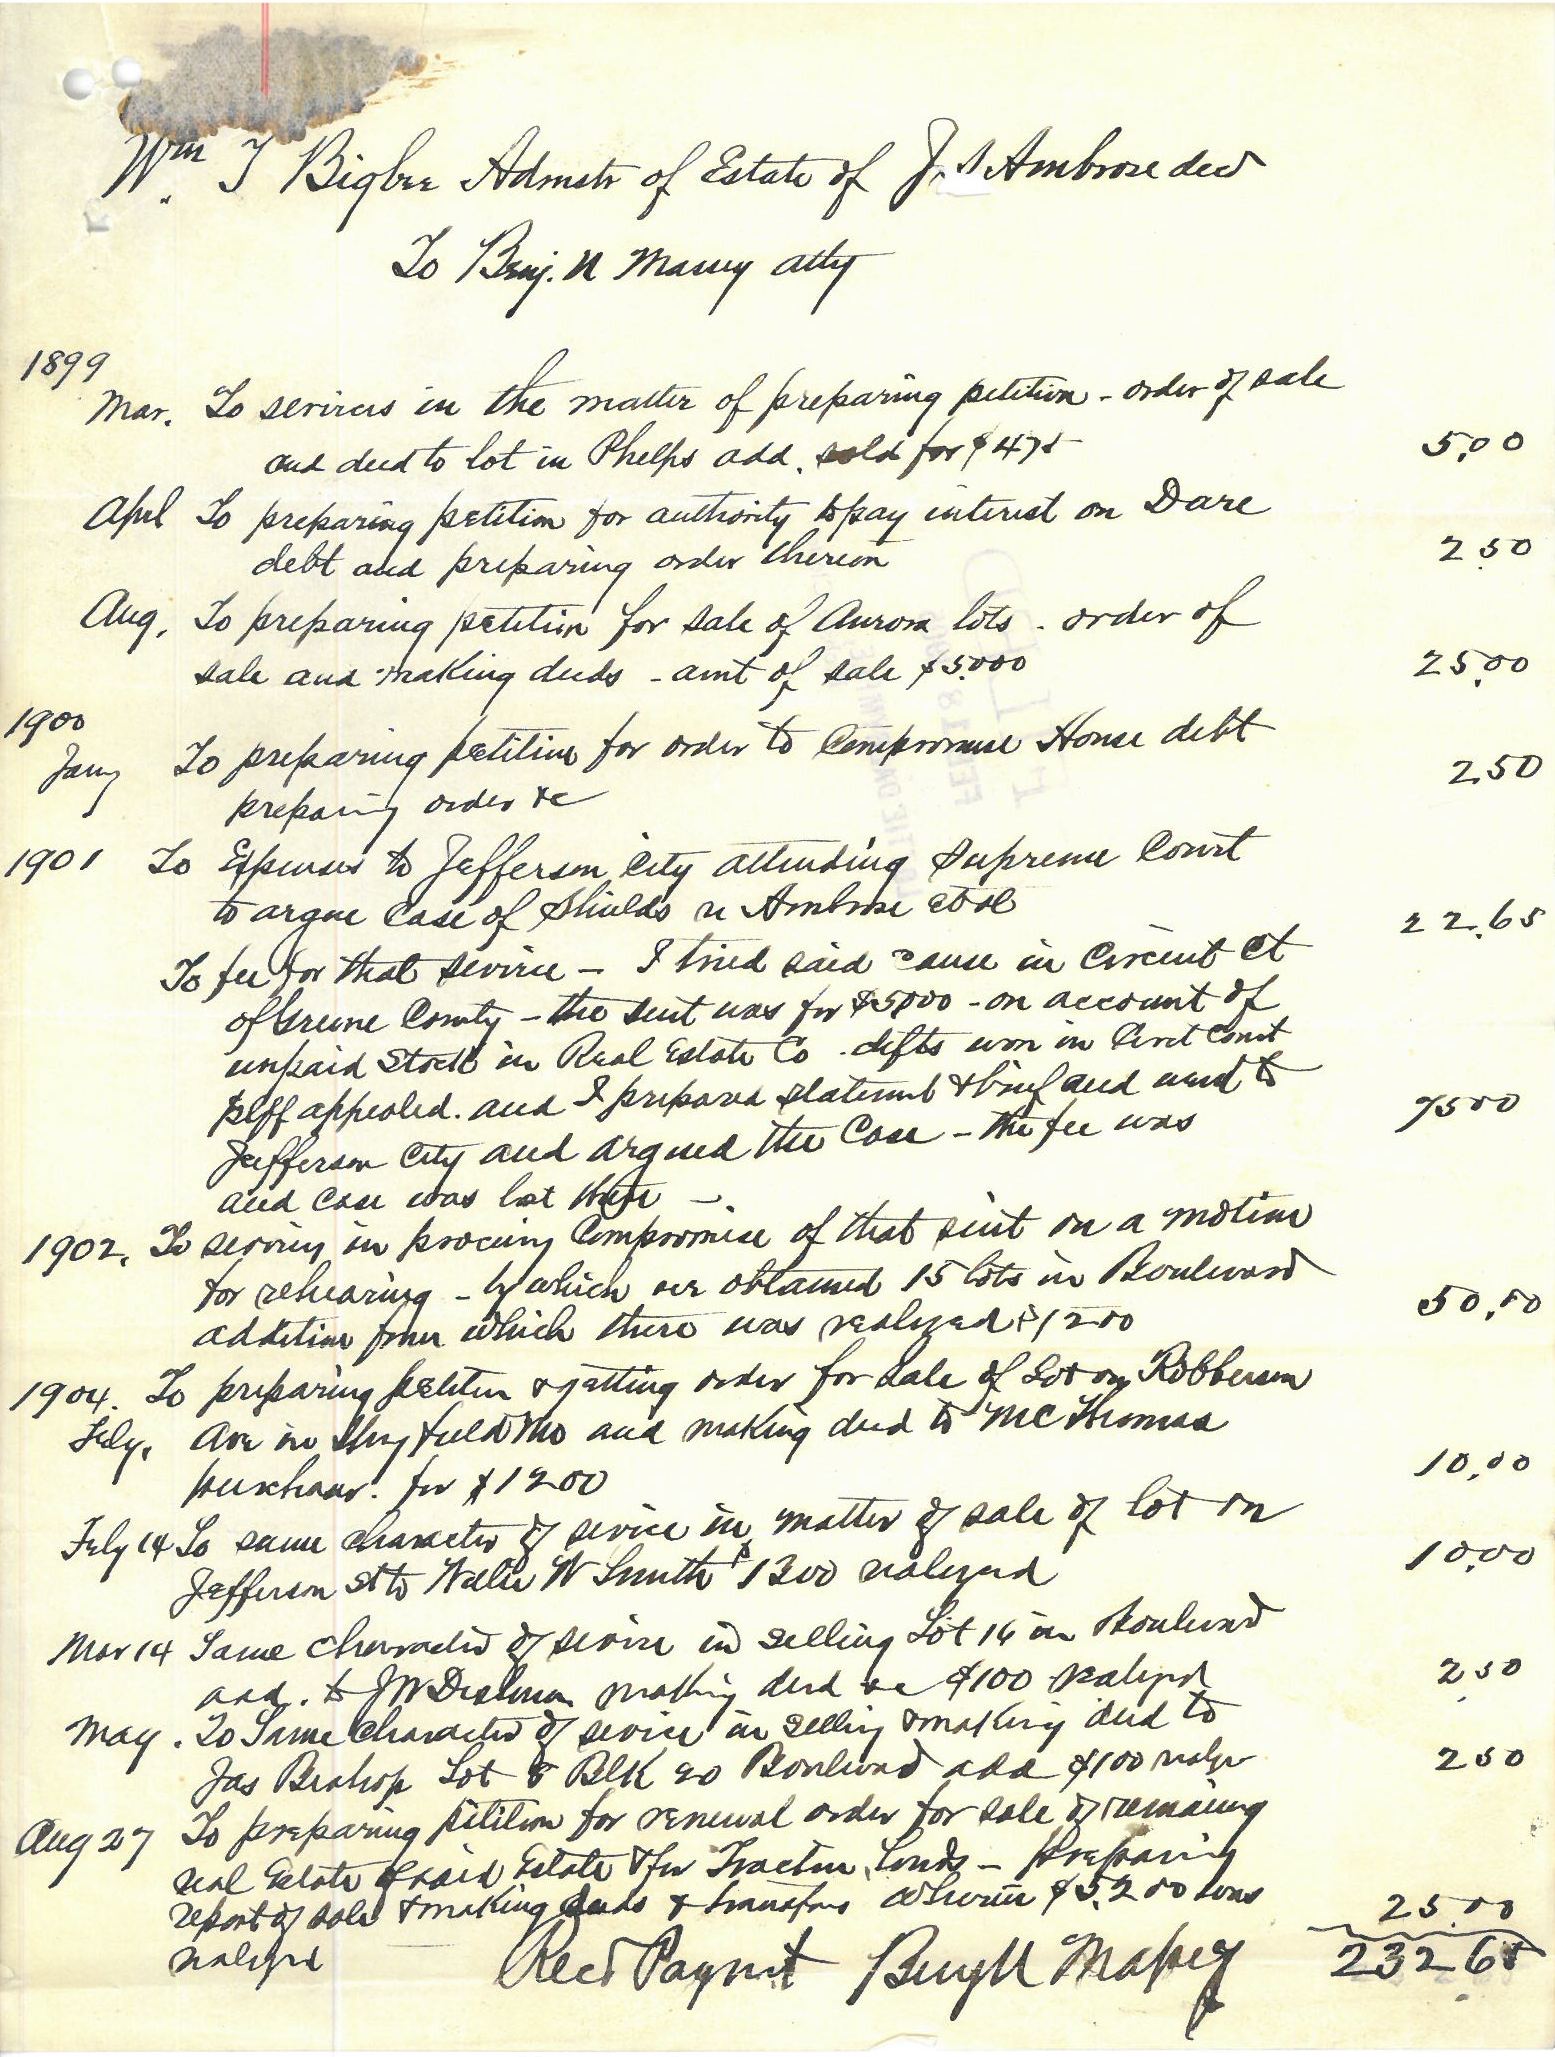 Wm. T Bigbee Admstr of Estate of J. S Ambrose decd
To Benj. N Massey atty
1899
Mar. To services in the matter of preparing petition - order of sale
and deed to lot in Phelps add. sold for $475 5.00
April To preparing petition for authority to pay interest on Dare
debt and preparing order therein 2.50
Aug. To preparing petition for sale of Aurora lots - order of
sale and making deeds - amt of sale $5000 25.00
1900
Jany To preparing petition for order to Compromise House debt
preparing order &c 2.50
1901 To Expenses to Jefferson City attending Supreme Court
to argue Case of Shields vs Ambrose et al 22.65
To fee for that service - I tried said cause in Circuit Ct
of Greene County - the suit was for $5000 - on account of
unpaid Stock in Real Estate Co - defts won in Circt Court
plff appealed. and I prepared statement & brief and went to
Jefferson City and argued the Case - the fee was 7500
and case was lost there -
1902. To services in procuring Compromise of that suit on a motion
for rehearing - by which we obtained 15 lots in Boulevard
addition from which there was realized $1200 50.00
1904. To preparing petition & getting order for sale of Lot on Robberson
Feby. Ave in Springfield Mo and making deed to McThomas
purchaser. for $1200 10.00
Feby 14 To same character of service in matter of sale of lot on
Jefferson St to W Smith $1300 realized 10.00
Mar 14 Same character of service in selling Lot 16 in Boulevard
add. to J W making deed &c $100 realized 2.50
May. To Same character of service in selling & making deed to
Jas Bishop Lot 8 Blk 20 Boulevard add $100 realized 250
Aug 27 To preparing petition for renewal order for sale of remaining
real Estate of said Estate & for Traction bonds - Preparing
report of sale & making deeds & transfers wherein $5200 was 25.00
realized Recd Paymt Benj N Massey 232.65